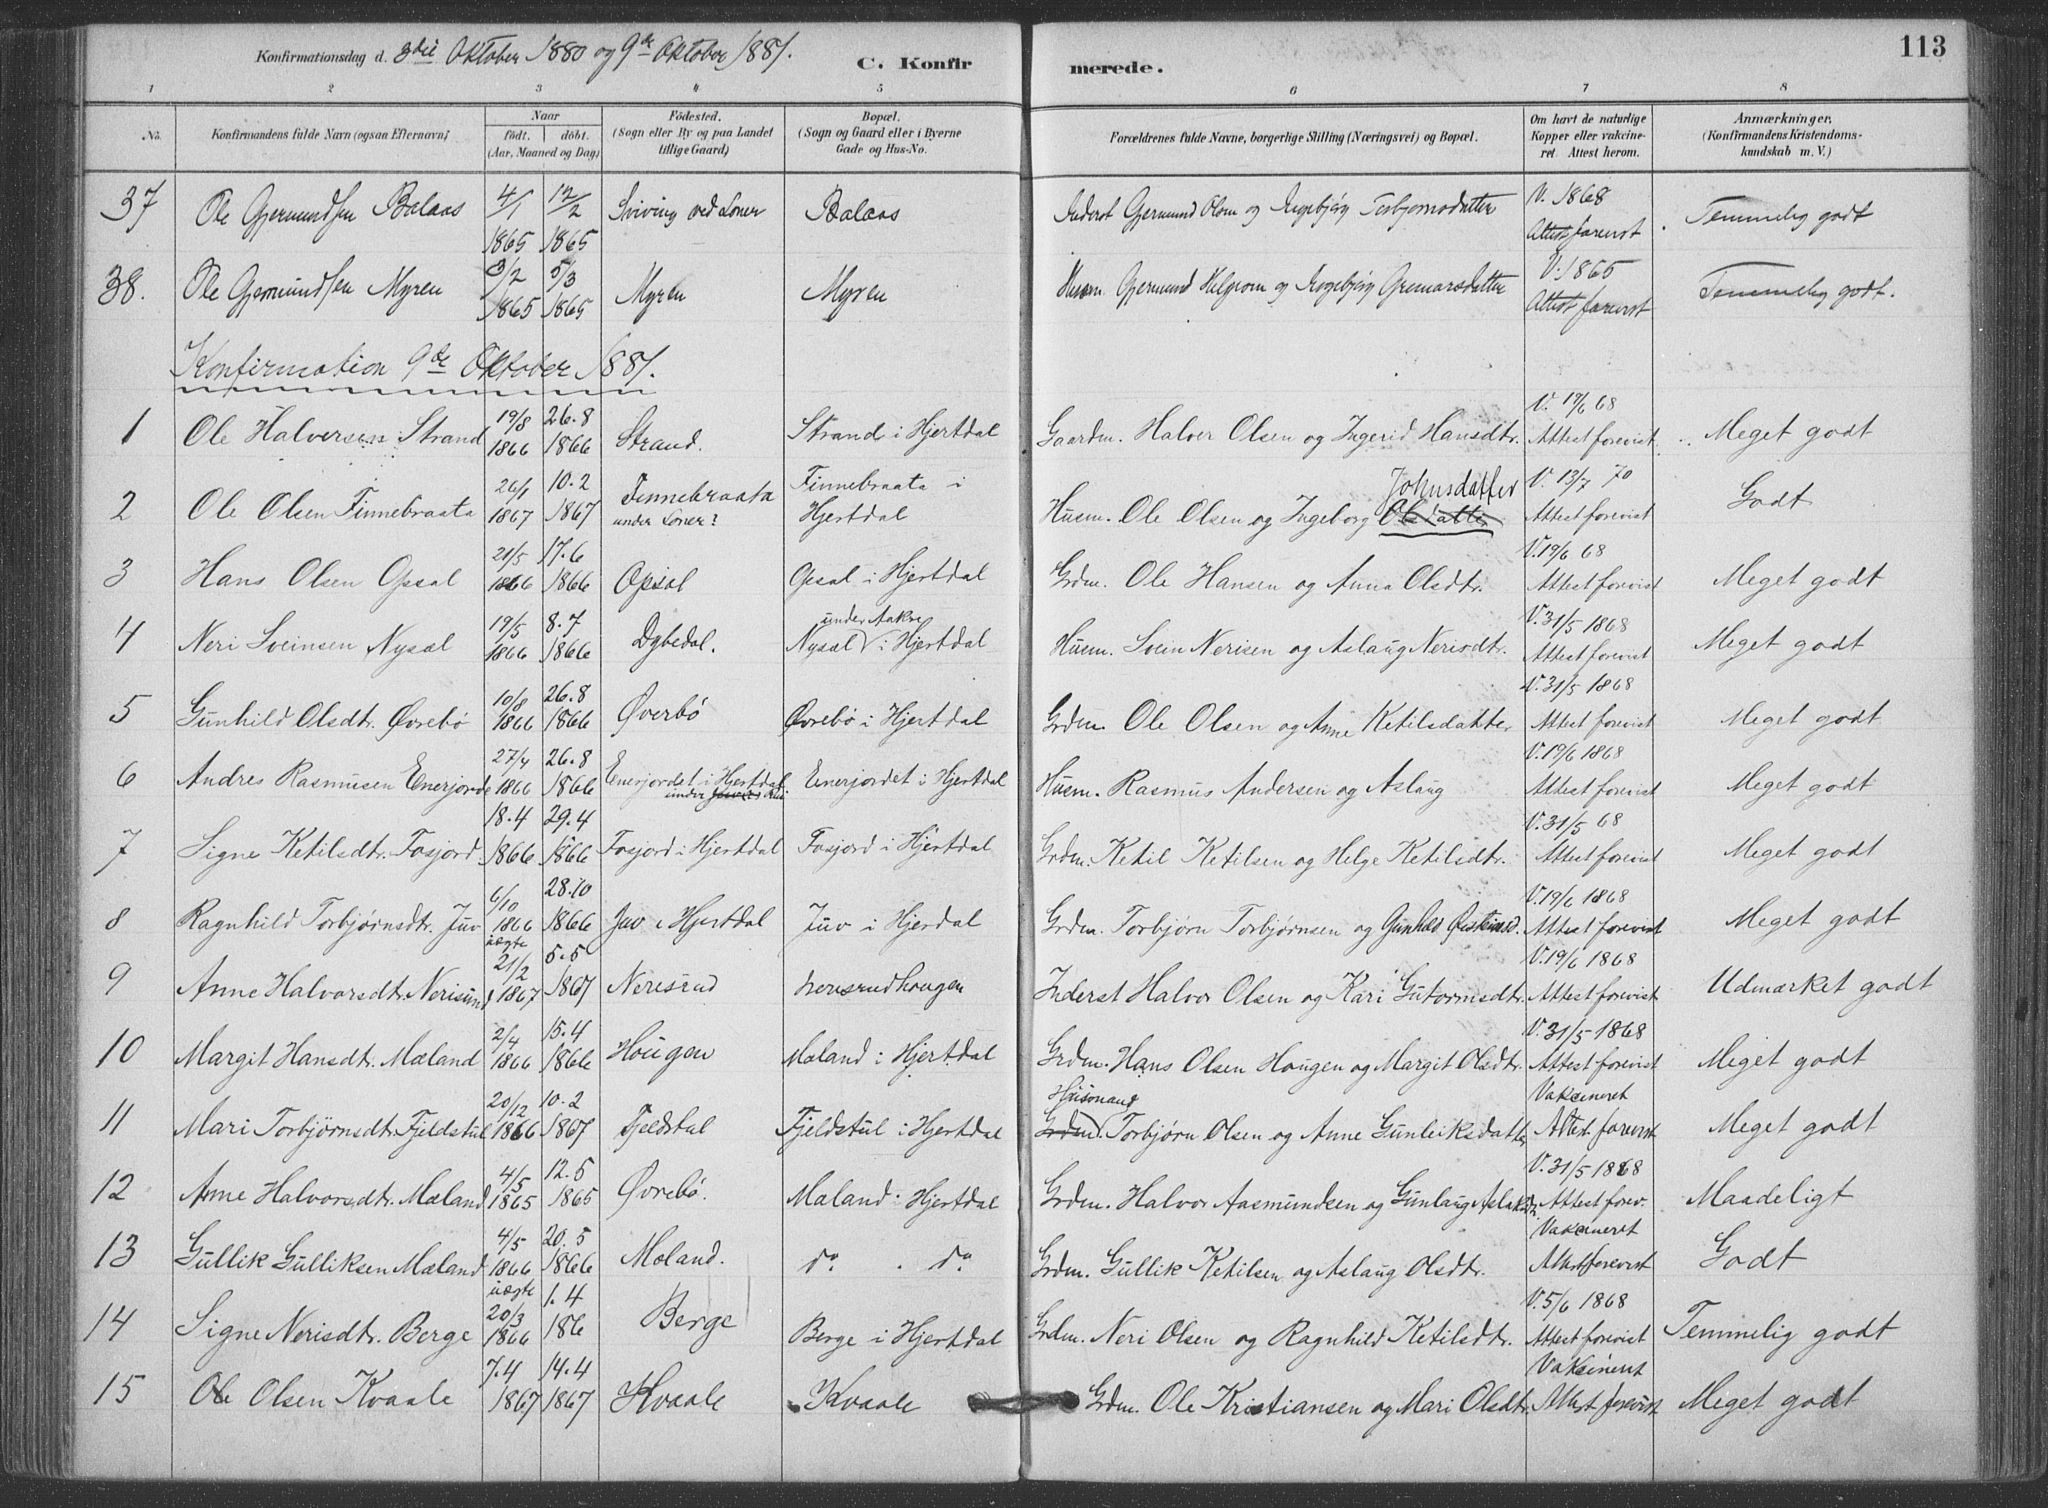 Konfirmationsdag d. 3die Oktober 1880 og 9de Oktober 1881.
C. Konfir merede.
113
1 2 3 4 5 6 7 8
No. Konfirmandens fulde Navn (ogsaa Efternavn) Naar födt. döbt. (Aar, Maaned og Dag) Födested. (Sogn eller By og paa Landet tillige Gaard) Bopæl. (Sogn og Gaard eller i Byerne Gade og Hus-No. Forældrenes fulde Navne, borgerlige Stilling (Næringsvei) og Bopæl. Om havt de naturlige Kopper eller vakcineret. Attest herom. Anmærkninger. (Konfirmandens Kristendomskundskab m. V.)
37 Ole Gjermundsen Balaas 4/1 1865 12/2 1865 Sviving ved Loner Balaas Inderst Gjermund Olsen og Ingebjörg Torbjornsdatter V. 1868 Attest forevist Temmelig godt
38. Ole Gjermundsen Myren 3/2 1865 5/3 1865 Myren Myren Husm. Gjermund Helgesen og Ingebjörg Gremarsdatter V. 1865 Attest forevist Temmelig godt.
Konfirmation 9de Oktober 1881.
1 Ole Halversen Strand 19/8 1866 26.8 1866 Strand. Strand i Hjertdal Gaardm. Halver Olsen og Ingerid Hansdtr. V. 19/6 68 Attest forevist Meget godt
2 Ole Olsen Finnebraata 26/1 1867 10.2 1867 Finnebraata under Loner? Finnebraata i Hjertdal Husm. Ole Olsen og Ingeborg Olsdatter Johnsdatter V. 13/7 70 Attest forevist Godt
3 Hans Olsen Opsal 21/5 1866 17.6 1866 Opsal Opsal i Hjertdal Grdm. Ole Hansen og Anna Olsdtr. V. 19/6 68 Attest forevist Meget godt
4 Neri Sveinsen Nysæl 19/5 1866 8.7 1866 Dybedal. Nysæl under Aakre i Hjertdal Husm. Svein Nerisen og Aslaug Nerisdtr. V. 31/5 1868 Attest forevist Meget godt
5 Gunhild Olsdtr. Øvrebö 10/8 1866 26.8 1866 Øverbö Øvrebö i Hjertdal Grdm. Ole Olsen og Anne Ketilsdatter V. 31/5 1868 Attest forevist Meget godt
6 Andres Rasmusen Enerjorde 27/4 1866 26.8 1866 Enerjordet i Hjertdal under Enerjordet i Hjertdal Husm. Rasmus Andersen og Aslaug V. 19/6 1868 Attest forevist Meget godt
7 Signe Ketilsdtr. Fosjord 18.4 1866 29.4 1866 Fosjord i Hjertdal Fosjord i Hjertdal Grdm. Ketil Ketilsen og Helge Ketilsdtr. V. 31/5 68 Attest forevist Meget godt
8 Ragnhild Torbjørnsdtr. Juv 6/10 1866 28.10 1866 Juv i Hjertdal Juv i Hjerdal Grdm. Torbjørn Torbjørnsen og Gunhild Øisteinsd. V. 19/6 1868 Attest forevist Meget godt
9 Anne Halvorsdtr. Nerisund uægte 21/2 1867 5.5 1867 Nerisrud Nerisrudhougen Inderst Halvor Olsen og Kari Gutormsdtr. V. 19/6 1868 Attest forevist Udmærket godt
10 Margit Hansdtr. Mæland 2/4 1866 15.4 1866 Hougen Mæland i Hjertdal Grdm. Hans Olsen Hougen og Margit Olsdtr. V. 31/5 1868 Attest forevist Meget godt
11 Mari Torbjørnsdtr. Fjeldstul 20/12 1866 10.2 1867 Fjeldstul Fjeldstul i Hjertdal Grdm. Husmand Torbjørn Olsen og Anne Gunleiksdatter Vakcineret Attest forevist Meget godt
12 Anne Halvorsdtr. Mæland 4/5 1865 12.5 1865 Øvrebö. Mæland i Hjertdal Grdm. Halvor Aasmundsen og Gunlaug Aslaksdtr. V. 31/5 1868 Attest forev. Maadeligt
13 Gullik Gulliksen Mæland 4/5 1866 20.5 1866 Moland. do. do. Grdm. Gullik Ketilsen og Aslaug Olsdtr. Vakcineret Attest forevist Godt
14 Signe Nerisdtr. Berge uægte 20/3 1866 1.4 186 Berge Berge i Hjertdal Grdm. Neri Olsen og Ragnhild Ketilsdtr. V. 5/6 1868 Attest forevist Temmelig godt
15 Ole Olsen Kvaale 7.4 1867 14.4 1867 Kvaale Kvaale Grdm. Ole Kristiansen og Mari Olsdtr. Vakcineret Attest forevist Meget godt